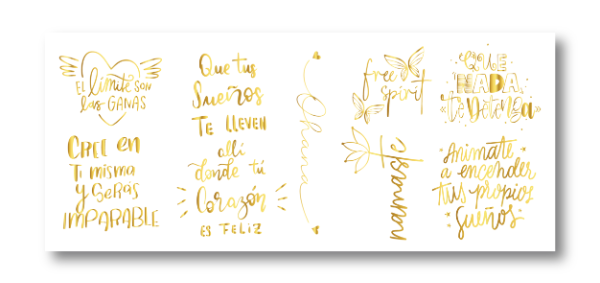 EL límite SON
las GANAS
CREE en
Ti misma
y SERÁS
IMPARABLE
Que tus
Sueños
TE LLEVEN
allí
donde tú
Corazón
ES FELIZ
Ohana
free
spirit
namasté
QUE
NADA
Te Detenga
Animate
a encender
tus propios
Sueños